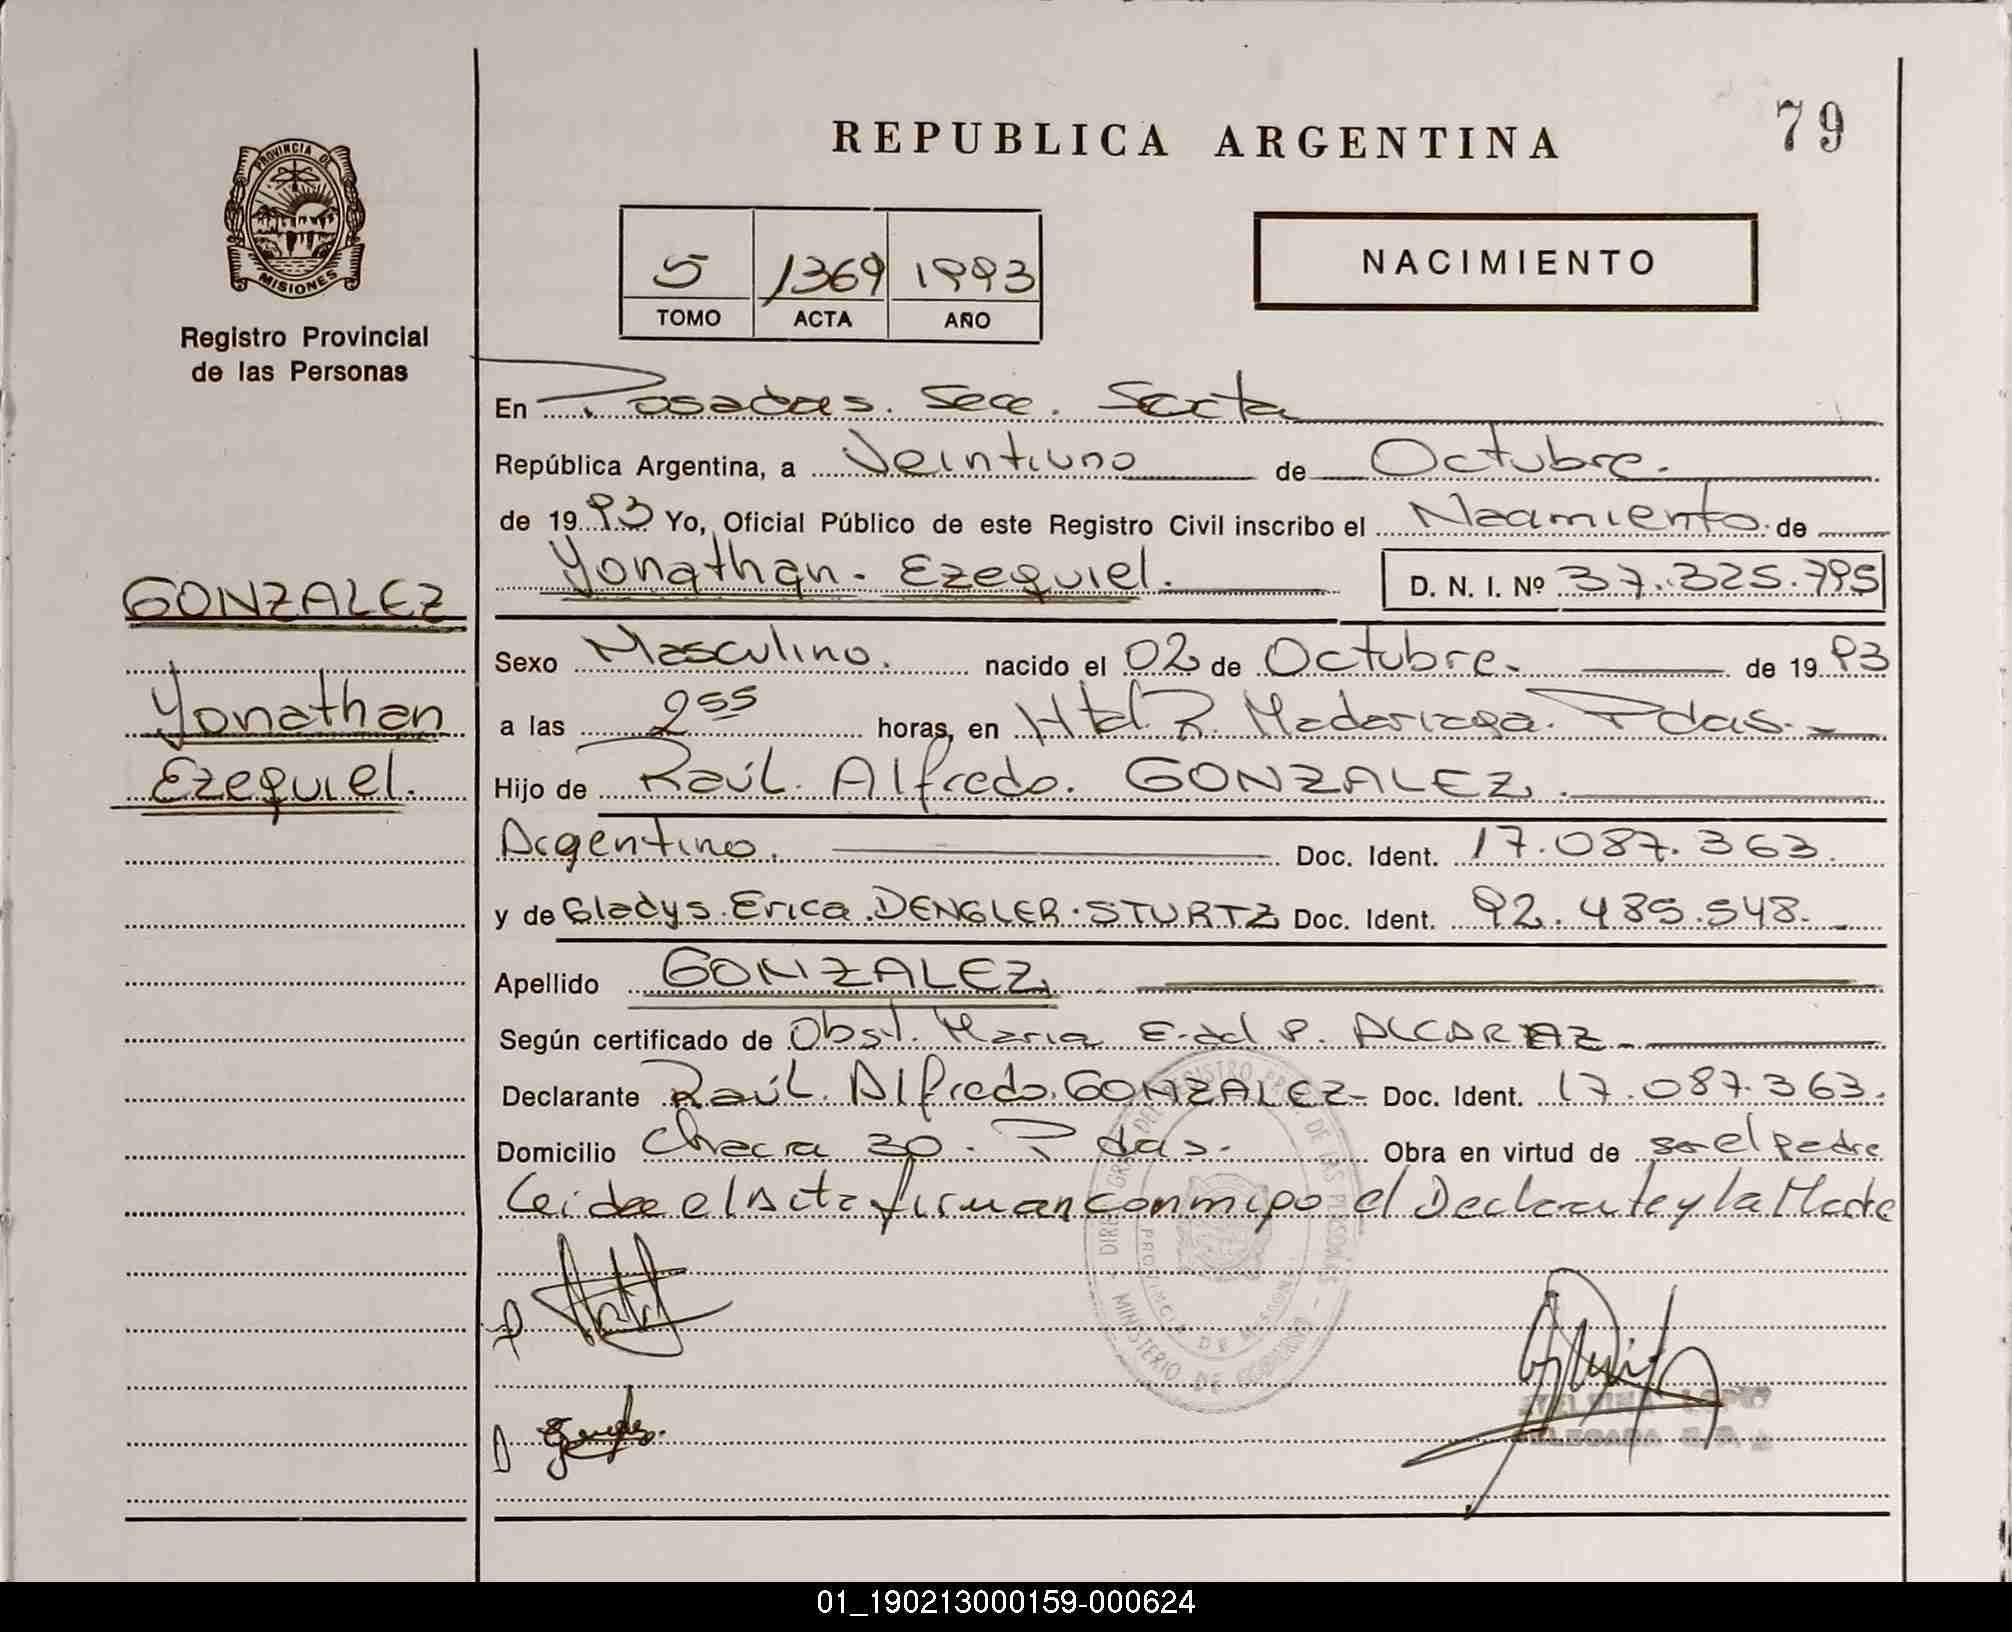 REPUBLICA ARGENTINA
79
PROVINCIA DE
MISIONES
Registro Provincial
de las Personas
5 1369 1993
TOMO ACTA AÑO
NACIMIENTO
En Posadas. Secc. Sexta
República Argentina, a Veintiuno de Octubre.
de 1993 Yo, Oficial Público de este Registro Civil inscribo el Nacimiento de
Yonathan. Ezequiel. D. N. I. Nº 37.325.795
GONZALEZ
Yonathan
Ezequiel.
Sexo Masculino. nacido el 02 de Octubre. de 1993
a las 2 55 horas, en Htal. R. Madariaga. Pdas.
Hijo de Raúl. Alfredo. GONZALEZ.
Argentino. Doc. Ident. 17.087.363.
y de Gladys. Erica. DENGLER. STURTZ Doc. Ident. 92.485.548.
Apellido GONZALEZ
Según certificado de Obst. Maria E. del P. ALCARAZ
Declarante Raúl. Alfredo. GONZALEZ- Doc. Ident. 17.087.363.
Domicilio Chacra 30. Pdas. Obra en virtud de ser el padre
Leida el Acta firman conmigo el Declarante y la Madre
DEL REGISTRO DE LAS PERSONAS
PROVINCIA DE MISIONES
MINISTERIO DE GOBIERNO
01_190213000159-000624